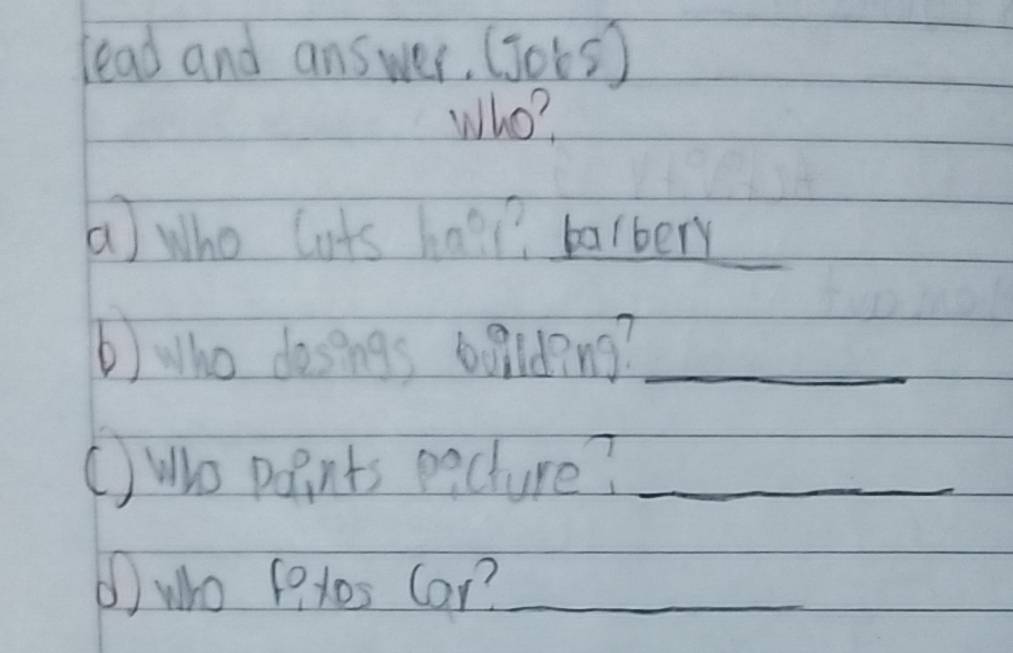 read and answer. (Jobs)
Who?
a) Who Cuts hair? barbery
b) who desings building?
c) Who paints picture?
d) who fixes Car?